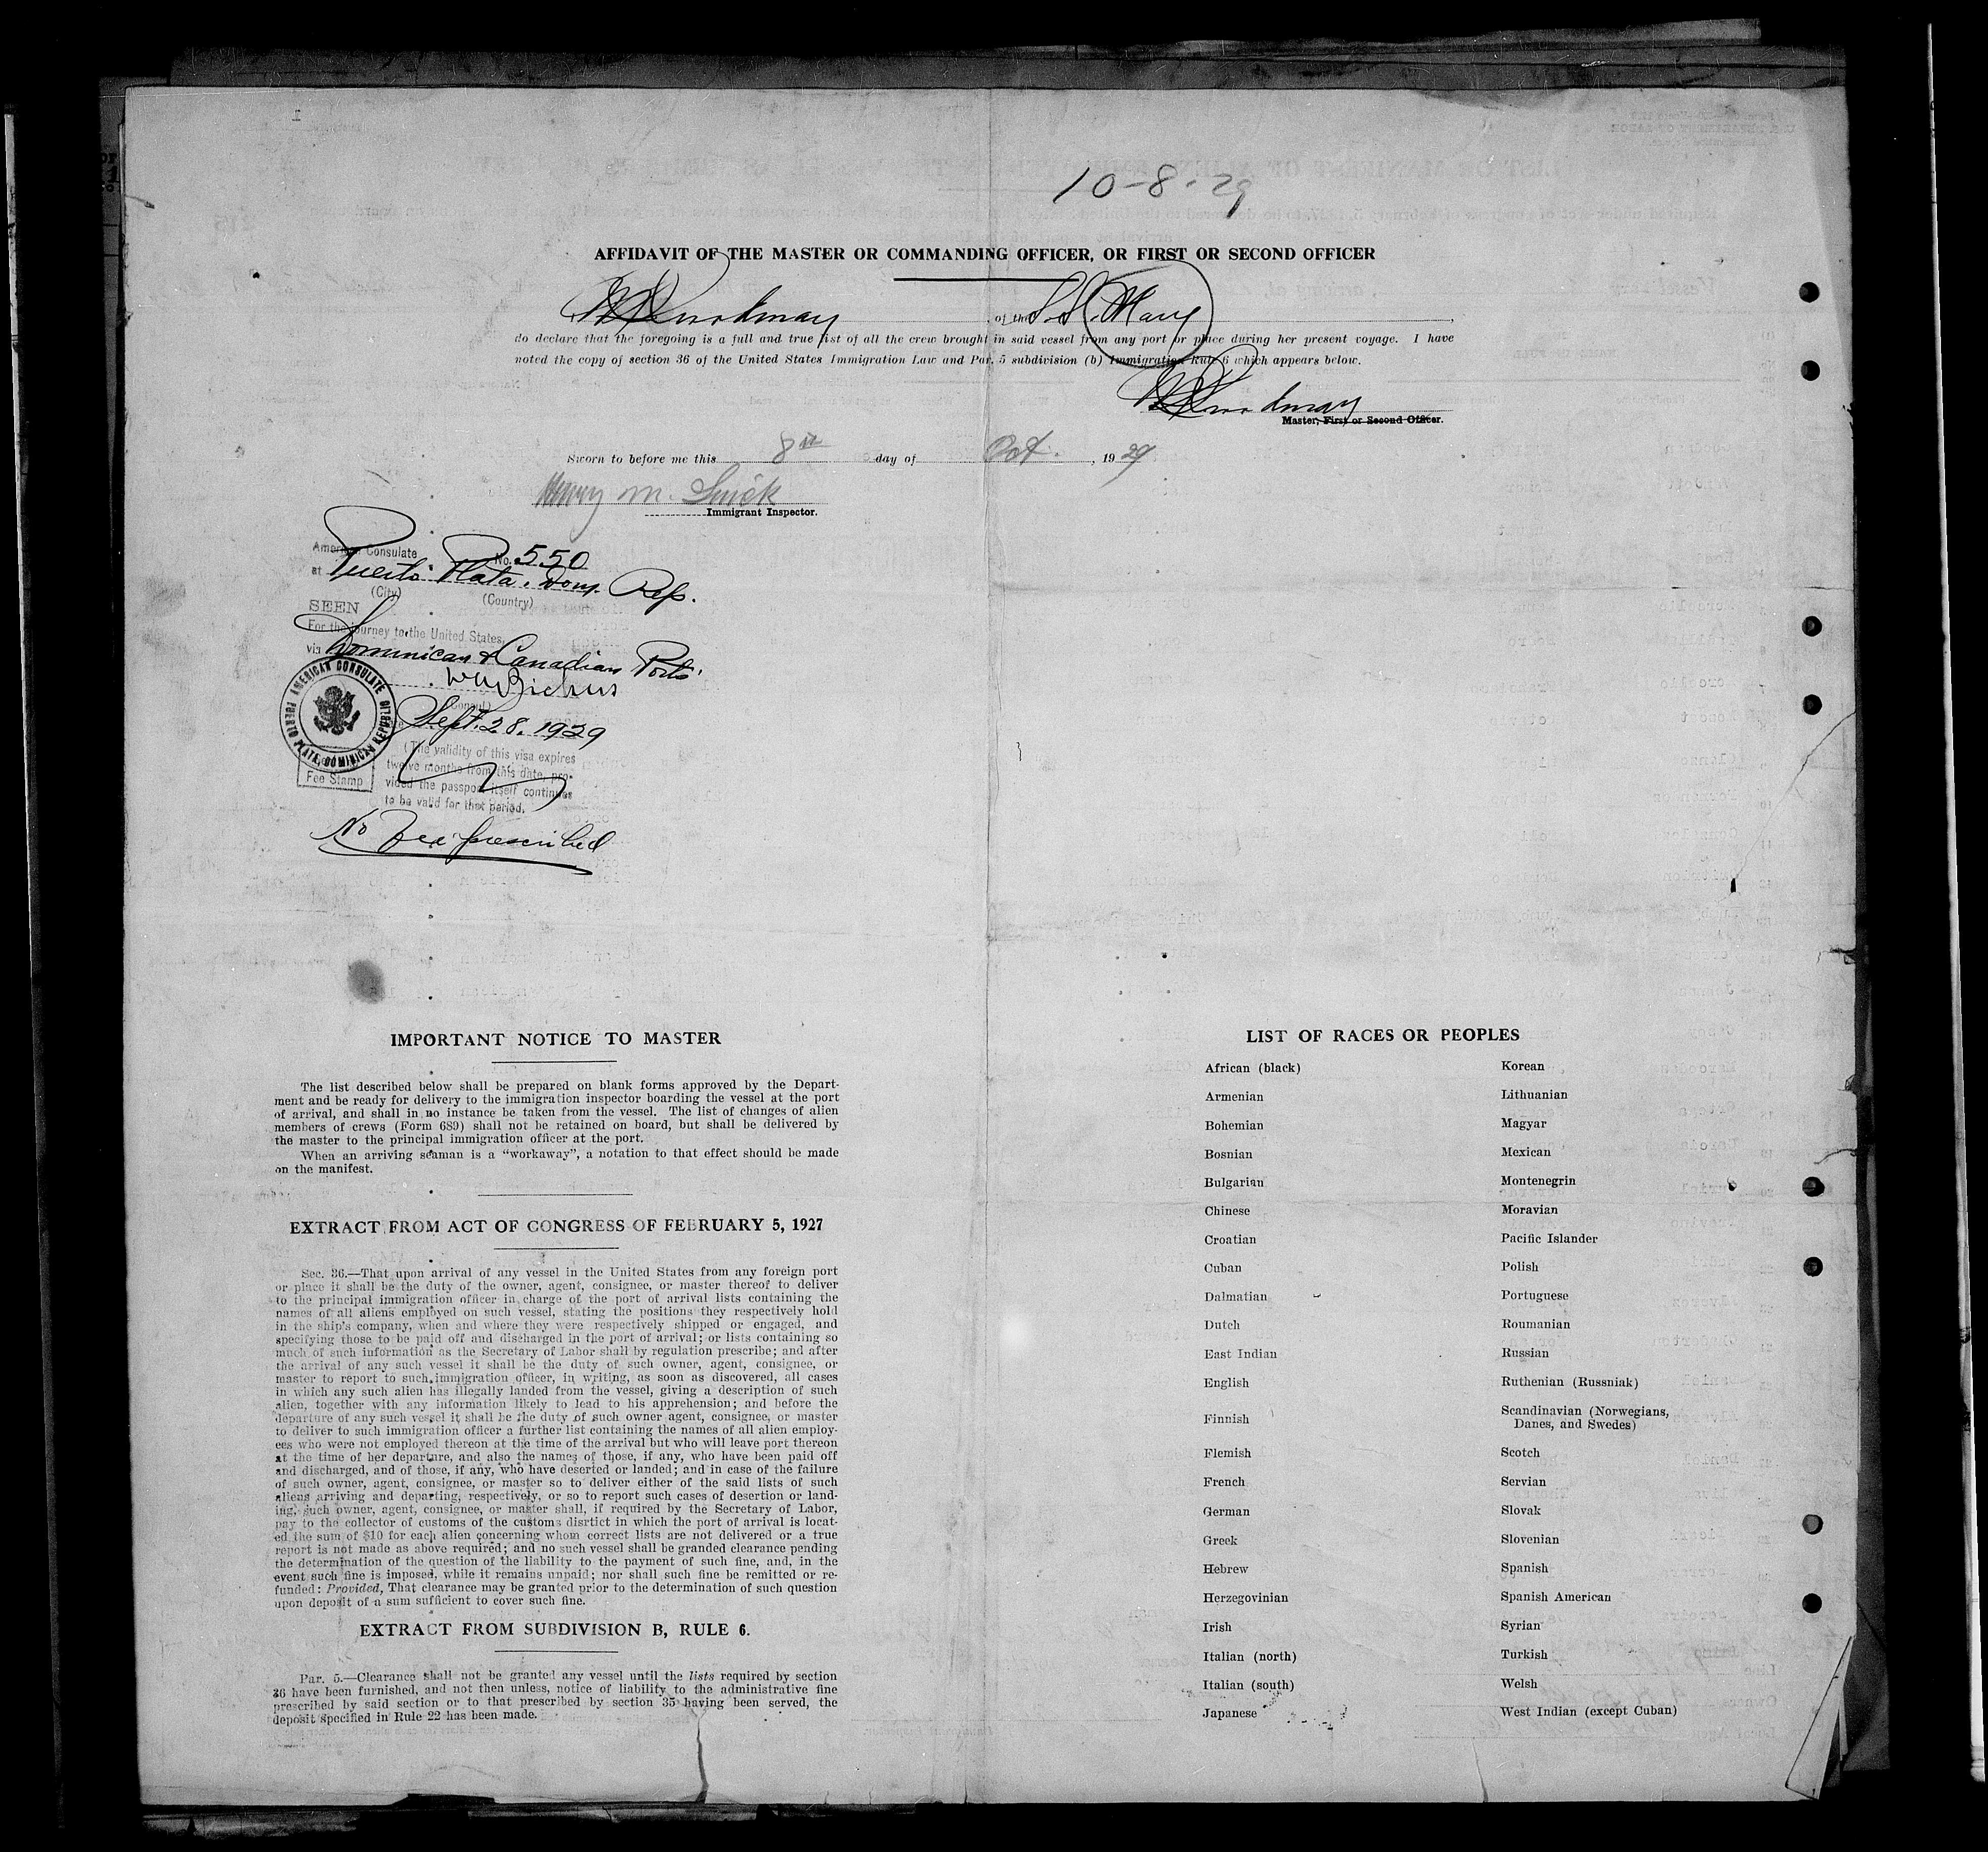 10-8-29
AFFIDAVIT OF THE MASTER OR COMMANDING OFFICER, OR FIRST OR SECOND OFFICER
of the S.S. Mary
do declare that the foregoing is a full and true list of all the crew brought in said vessel from any port or place during her present voyage. I have
noted the copy of section 36 of the United States Immigration Law and Par. 5 subdivision (b) Immigration Rule 6 which appears below.
Master, First or Second Officer.
Sworn to before me this 8th day of Oct. , 1929
Henry M.
Immigrant Inspector.
American Consulate No. 550
at Puerto Plata. Dom. Rep.
(City) (Country)
SEEN
For the journey to the United States,
via Dominican & Canadian Ports.
(Consul)
Sept. 28. 1929
AMERICAN CONSULATE
PUERTO PLATA, DOMINICAN REPUBLIC
(The validity of this visa expires
twelve months from this date, pro-
vided the passport itself continues
to be valid for that period.
Fee Stamp
No Fee prescribed
IMPORTANT NOTICE TO MASTER
The list described below shall be prepared on blank forms approved by the Depart-
ment and be ready for delivery to the immigration inspector boarding the vessel at the port
of arrival, and shall in no instance be taken from the vessel. The list of changes of alien
members of crews (Form 689) shall not be retained on board, but shall be delivered by
the master to the principal immigration officer at the port.
When an arriving seaman is a "workaway", a notation to that effect should be made
on the manifest.
EXTRACT FROM ACT OF CONGRESS OF FEBRUARY 5, 1927
Sec. 36.—That upon arrival of any vessel in the United States from any foreign port
or place it shall be the duty of the owner, agent, consignee, or master thereof to deliver
to the principal immigration officer in charge of the port of arrival lists containing the
names of all aliens employed on such vessel, stating the positions they respectively hold
in the ship's company, when and where they were respectively shipped or engaged, and
specifying those to be paid off and discharged in the port of arrival; or lists containing so
much of such information as the Secretary of Labor shall by regulation prescribe; and after
the arrival of any such vessel it shall be the duty of such owner, agent, consignee, or
master to report to such immigration officer, in writing, as soon as discovered, all cases
in which any such alien has illegally landed from the vessel, giving a description of such
alien, together with any information likely to lead to his apprehension; and before the
departure of any such vessel it shall be the duty of such owner agent, consignee, or master
to deliver to such immigration officer a further list containing the names of all alien employ-
ees who were not employed thereon at the time of the arrival but who will leave port thereon
at the time of her departure, and also the names of those, if any, who have been paid off
and discharged, and of those, if any, who have deserted or landed; and in case of the failure
of such owner, agent, consignee, or master so to deliver either of the said lists of such
aliens arriving and departing, respectively, or so to report such cases of desertion or land-
ing, such owner, agent, consignee, or master shall, if required by the Secretary of Labor,
pay to the collector of customs of the customs disrtict in which the port of arrival is locat-
ed the sum of $10 for each alien concerning whom correct lists are not delivered or a true
report is not made as above required; and no such vessel shall be granded clearance pending
the determination of the question of the liability to the payment of such fine, and, in the
event such fine is imposed, while it remains unpaid; nor shall such fine be remitted or re-
funded: Provided, That clearance may be granted prior to the determination of such question
upon deposit of a sum sufficient to cover such fine.
EXTRACT FROM SUBDIVISION B, RULE 6.
Par. 5.—Clearance shall not be granted any vessel until the lists required by section
36 have been furnished, and not then unless, notice of liability to the administrative fine
prescribed by said section or to that prescribed by section 35 having been served, the
deposit specified in Rule 22 has been made.
LIST OF RACES OR PEOPLES
African (black)
Armenian
Bohemian
Bosnian
Bulgarian
Chinese
Croatian
Cuban
Dalmatian
Dutch
East Indian
English
Finnish
Flemish
French
German
Greek
Hebrew
Herzegovinian
Irish
Italian (north)
Italian (south)
Japanese
Korean
Lithuanian
Magyar
Mexican
Montenegrin
Moravian
Pacific Islander
Polish
Portuguese
Roumanian
Russian
Ruthenian (Russniak)
Scandinavian (Norwegians,
Danes, and Swedes)
Scotch
Servian
Slovak
Slovenian
Spanish
Spanish American
Syrian
Turkish
Welsh
West Indian (except Cuban)